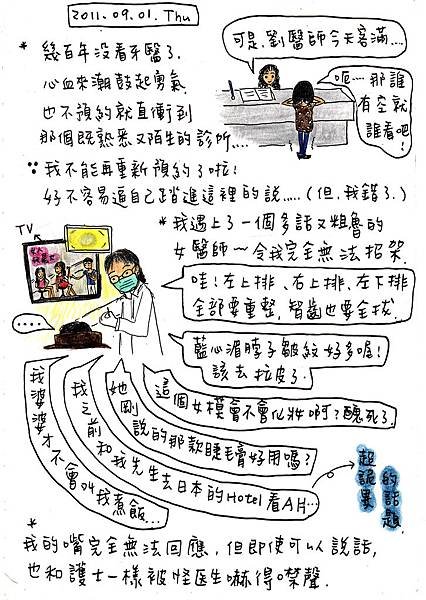 2011.09.01. Thu
* 幾百年沒看牙醫了.
心血來潮鼓起勇氣
也不預約就直衝到
那個既熟悉又陌生的診所....
可是.劉醫師今天客滿....
呃…那誰
有空就
誰看吧!
∵我不能再重新預約了啦!
好不容易逼自己踏進這裡的說..... (但,我錯了.)
* 我遇上了一個多話又粗魯的
女醫師~令我完全無法招架.
TV
哇!左上排、右上排、左下排
全部要重整,智齒也要全拔.
....
藍心湄脖子皺紋好多喔!
該去拉皮了.
這個女模會不會化妝啊?醜死了.
她剛說的那款睫毛膏好用嗎?
我之前和我先生去日本的Hotel看AH...
我婆婆才不會叫我煮飯...
超詭異
的話題.
*
我的嘴完全無法回應,但即使可以說話,
也和護士一樣被怪医生嚇得噤聲.